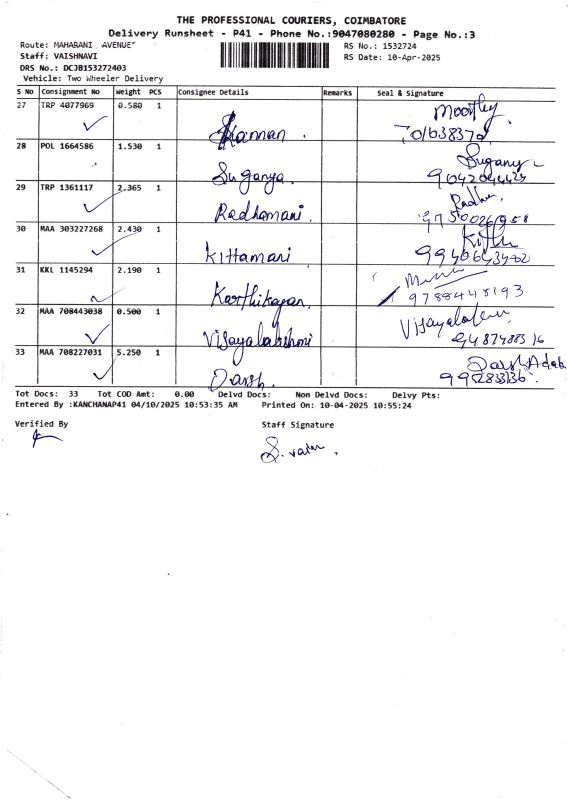 THE PROFESSIONAL COURIERS, COIMBATORE
Delivery Runsheet - P41 - Phone No.:9047080280 - Page No.:3
Route: MAHARANI AVENUE
RS No.: 1532724
Staff: VAISHNAVI
RS Date: 10-Apr-2025
DRS No.: DCJB153272403
Vehicle: Two Wheeler Delivery
S No Consignment No Weight PCS Consignee Details Remarks Seal & Signature
27 TRP 4077969 0.580 1 Kannan Moorthy
28 POL 1664586 1.530 1 Suganya Sugany
29 TRP 1361117 2.365 1 Radhamani. Radha
30 MAA 303227268 2.430 1 Kittamani
31 KKL 1145294 2.190 1 Karthikayan 9788448193
32 MAA 708443038 0.500 1 Vijayalakshmi
33 MAA 708227031 5.250 1 Darsh.
Tot Docs: 33 Tot COD Amt: 0.00 Delvd Docs: Non Delvd Docs: Delvy Pts:
Entered By :KANCHANAP41 04/10/2025 10:53:35 AM Printed On: 10-04-2025 10:55:24
Verified By Staff Signature